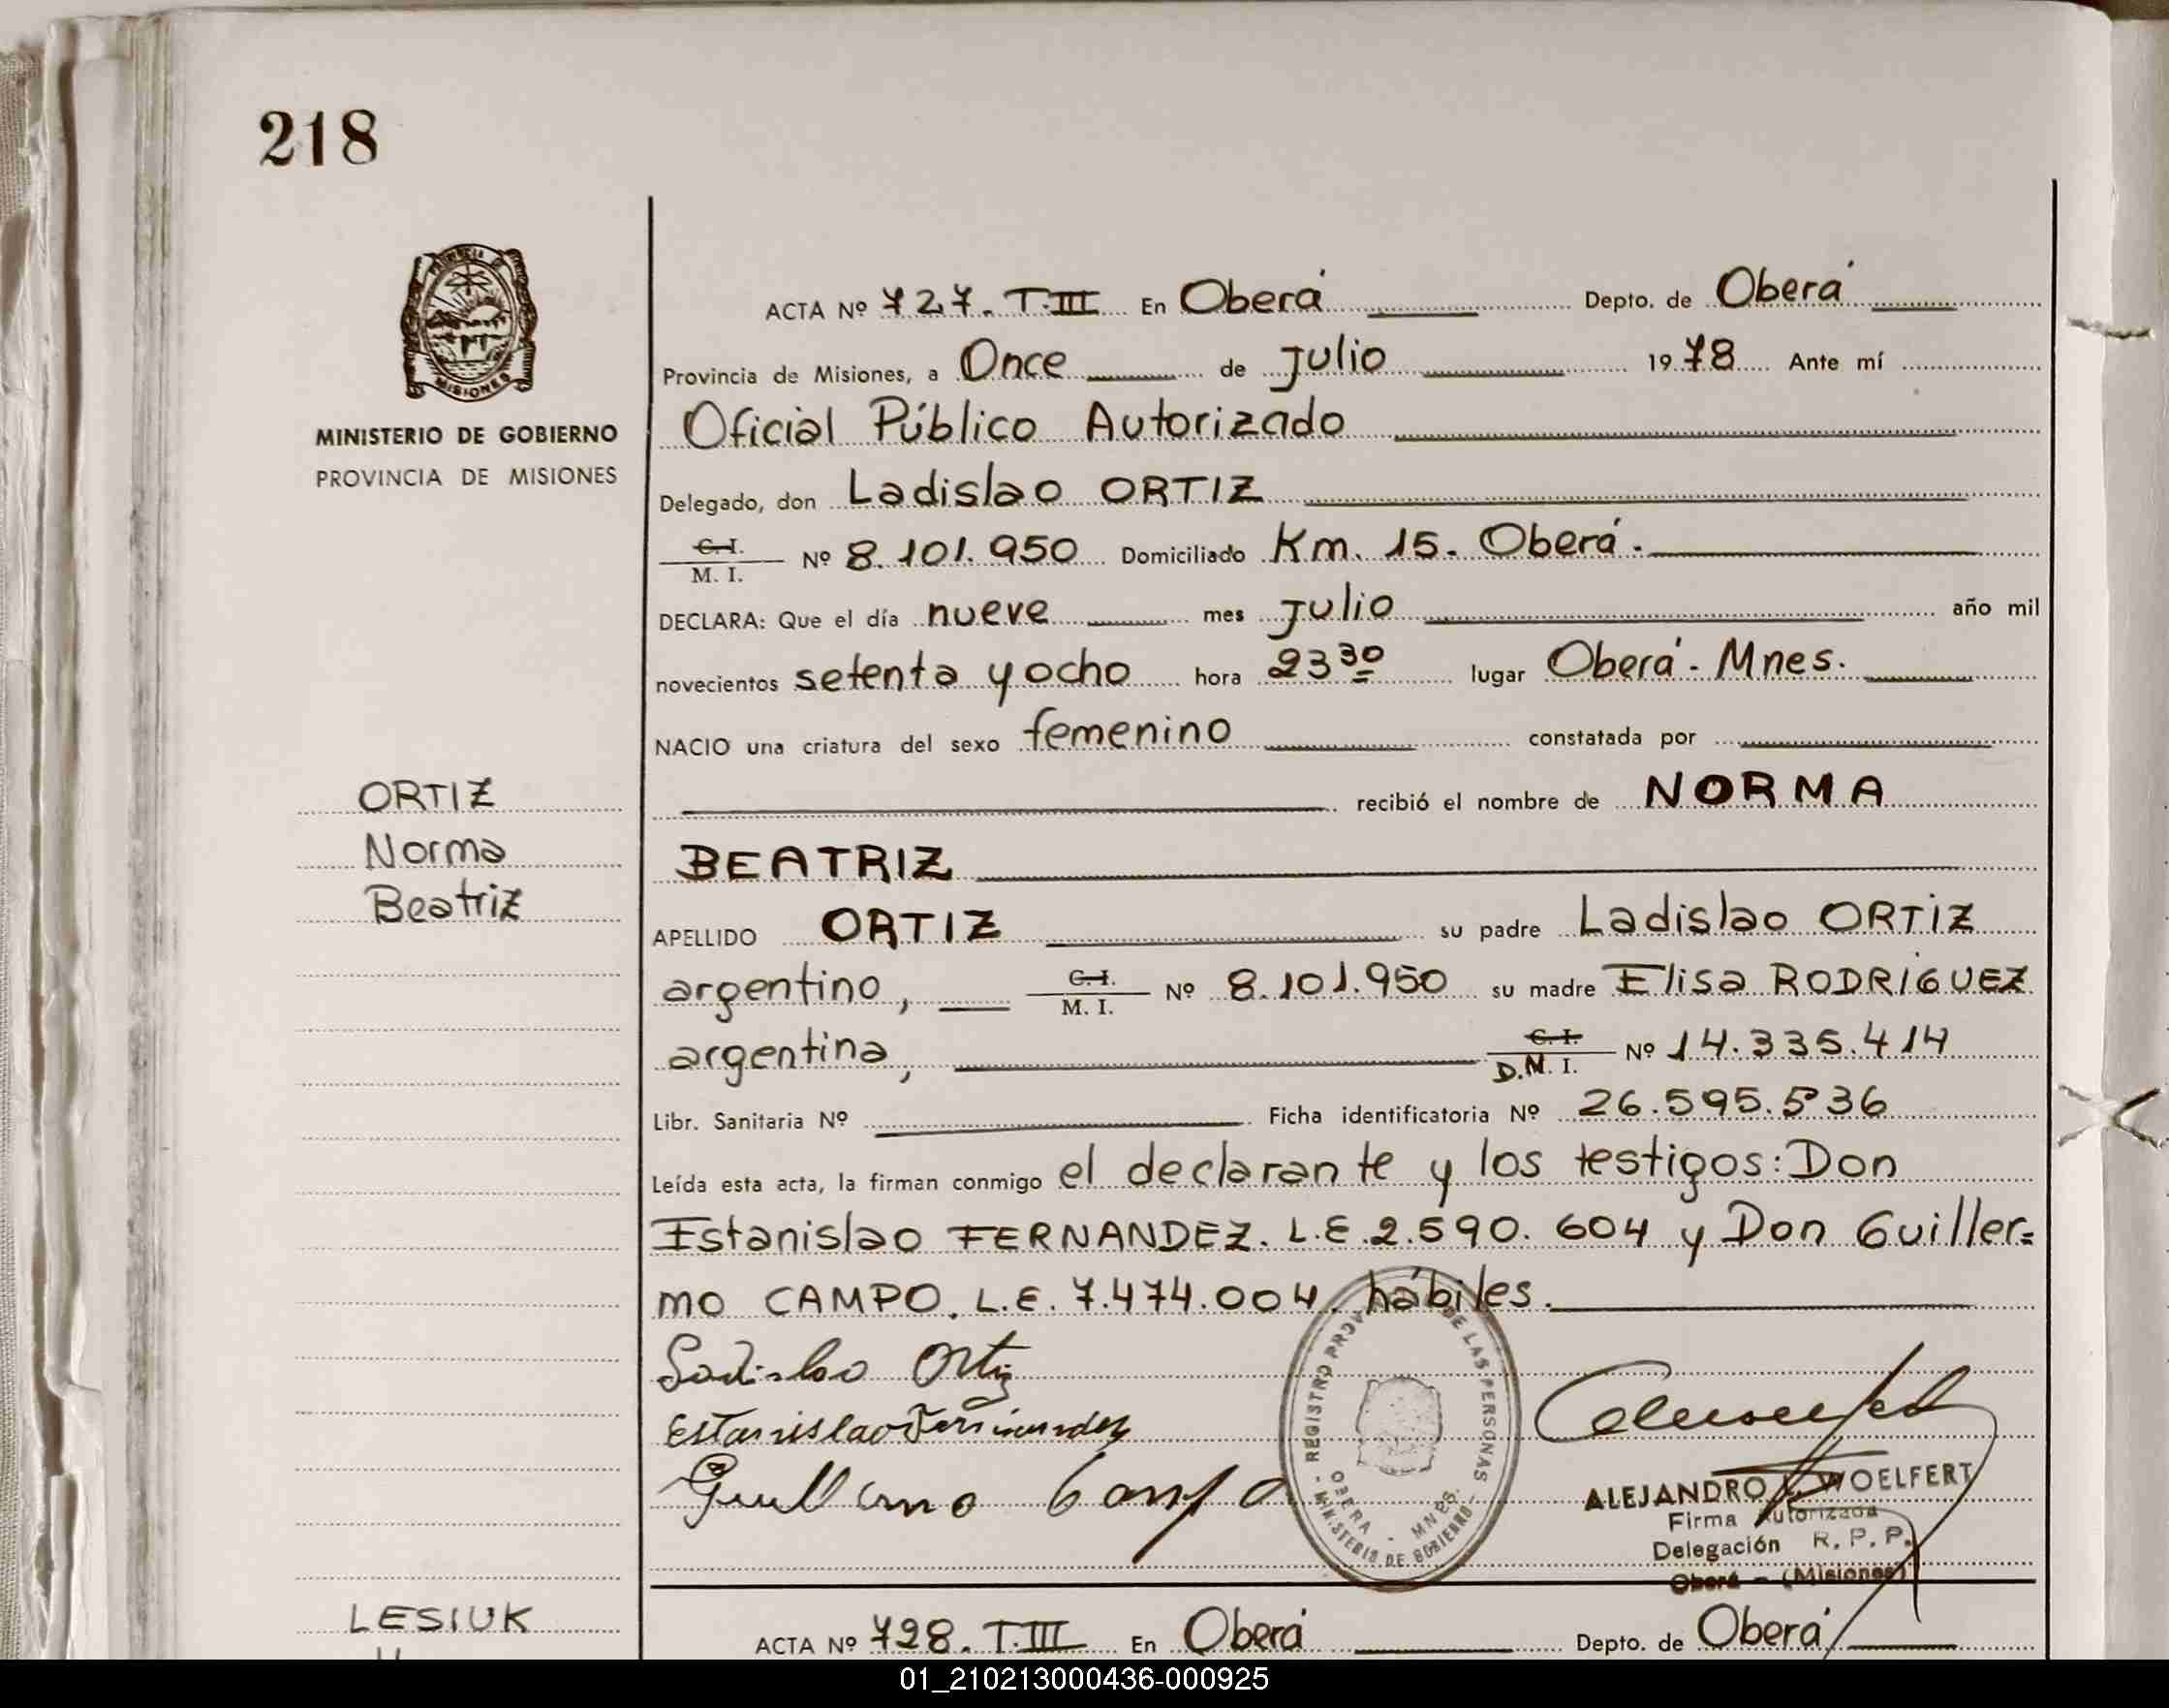 218
PROVINCIA DE
MISIONES
MINISTERIO DE GOBIERNO
PROVINCIA DE MISIONES
ORTIZ
Norma
Beatriz
ACTA Nº 727. T.III En Oberá Depto. de Oberá
Provincia de Misiones, a Once de Julio 1978 Ante mí
Oficial Público Autorizado
Delegado, don Ladislao ORTIZ
C. I. M. I. Nº 8.101.950 Domiciliado Km. 15. Oberá.
DECLARA: Que el día nueve mes Julio año mil
novecientos setenta y ocho hora 23 30 lugar Oberá - Mnes.
NACIO una criatura del sexo femenino constatada por
recibió el nombre de NORMA
BEATRIZ
APELLIDO ORTIZ su padre Ladislao ORTIZ
argentino, C. I. M. I. Nº 8.101.950 su madre Elisa RODRIGUEZ
argentina, C. I. D.N. I. Nº 14.335.414
Libr. Sanitaria Nº Ficha identificatoria Nº 26.595.536
Leída esta acta, la firman conmigo el declarante y los testigos: Don
Estanislao FERNANDEZ. L.E. 2.590.604 y Don Guiller=
mo CAMPO. L.E. 7.474.004. hábiles.
Ladislao Ortiz
Estanislao Fernandez
Guillermo Campo
- REGISTRO PROV DE LAS PERSONAS -
MINISTERIO DE GOBIERNO
OBERA - MNES.
ALEJANDRO WOELFERT
Firma Autorizada
Delegación R. P. P.
Oberá - (Misiones)
LESIUK
ACTA Nº 728. T.III En Oberá Depto. de Oberá
01_210213000436-000925